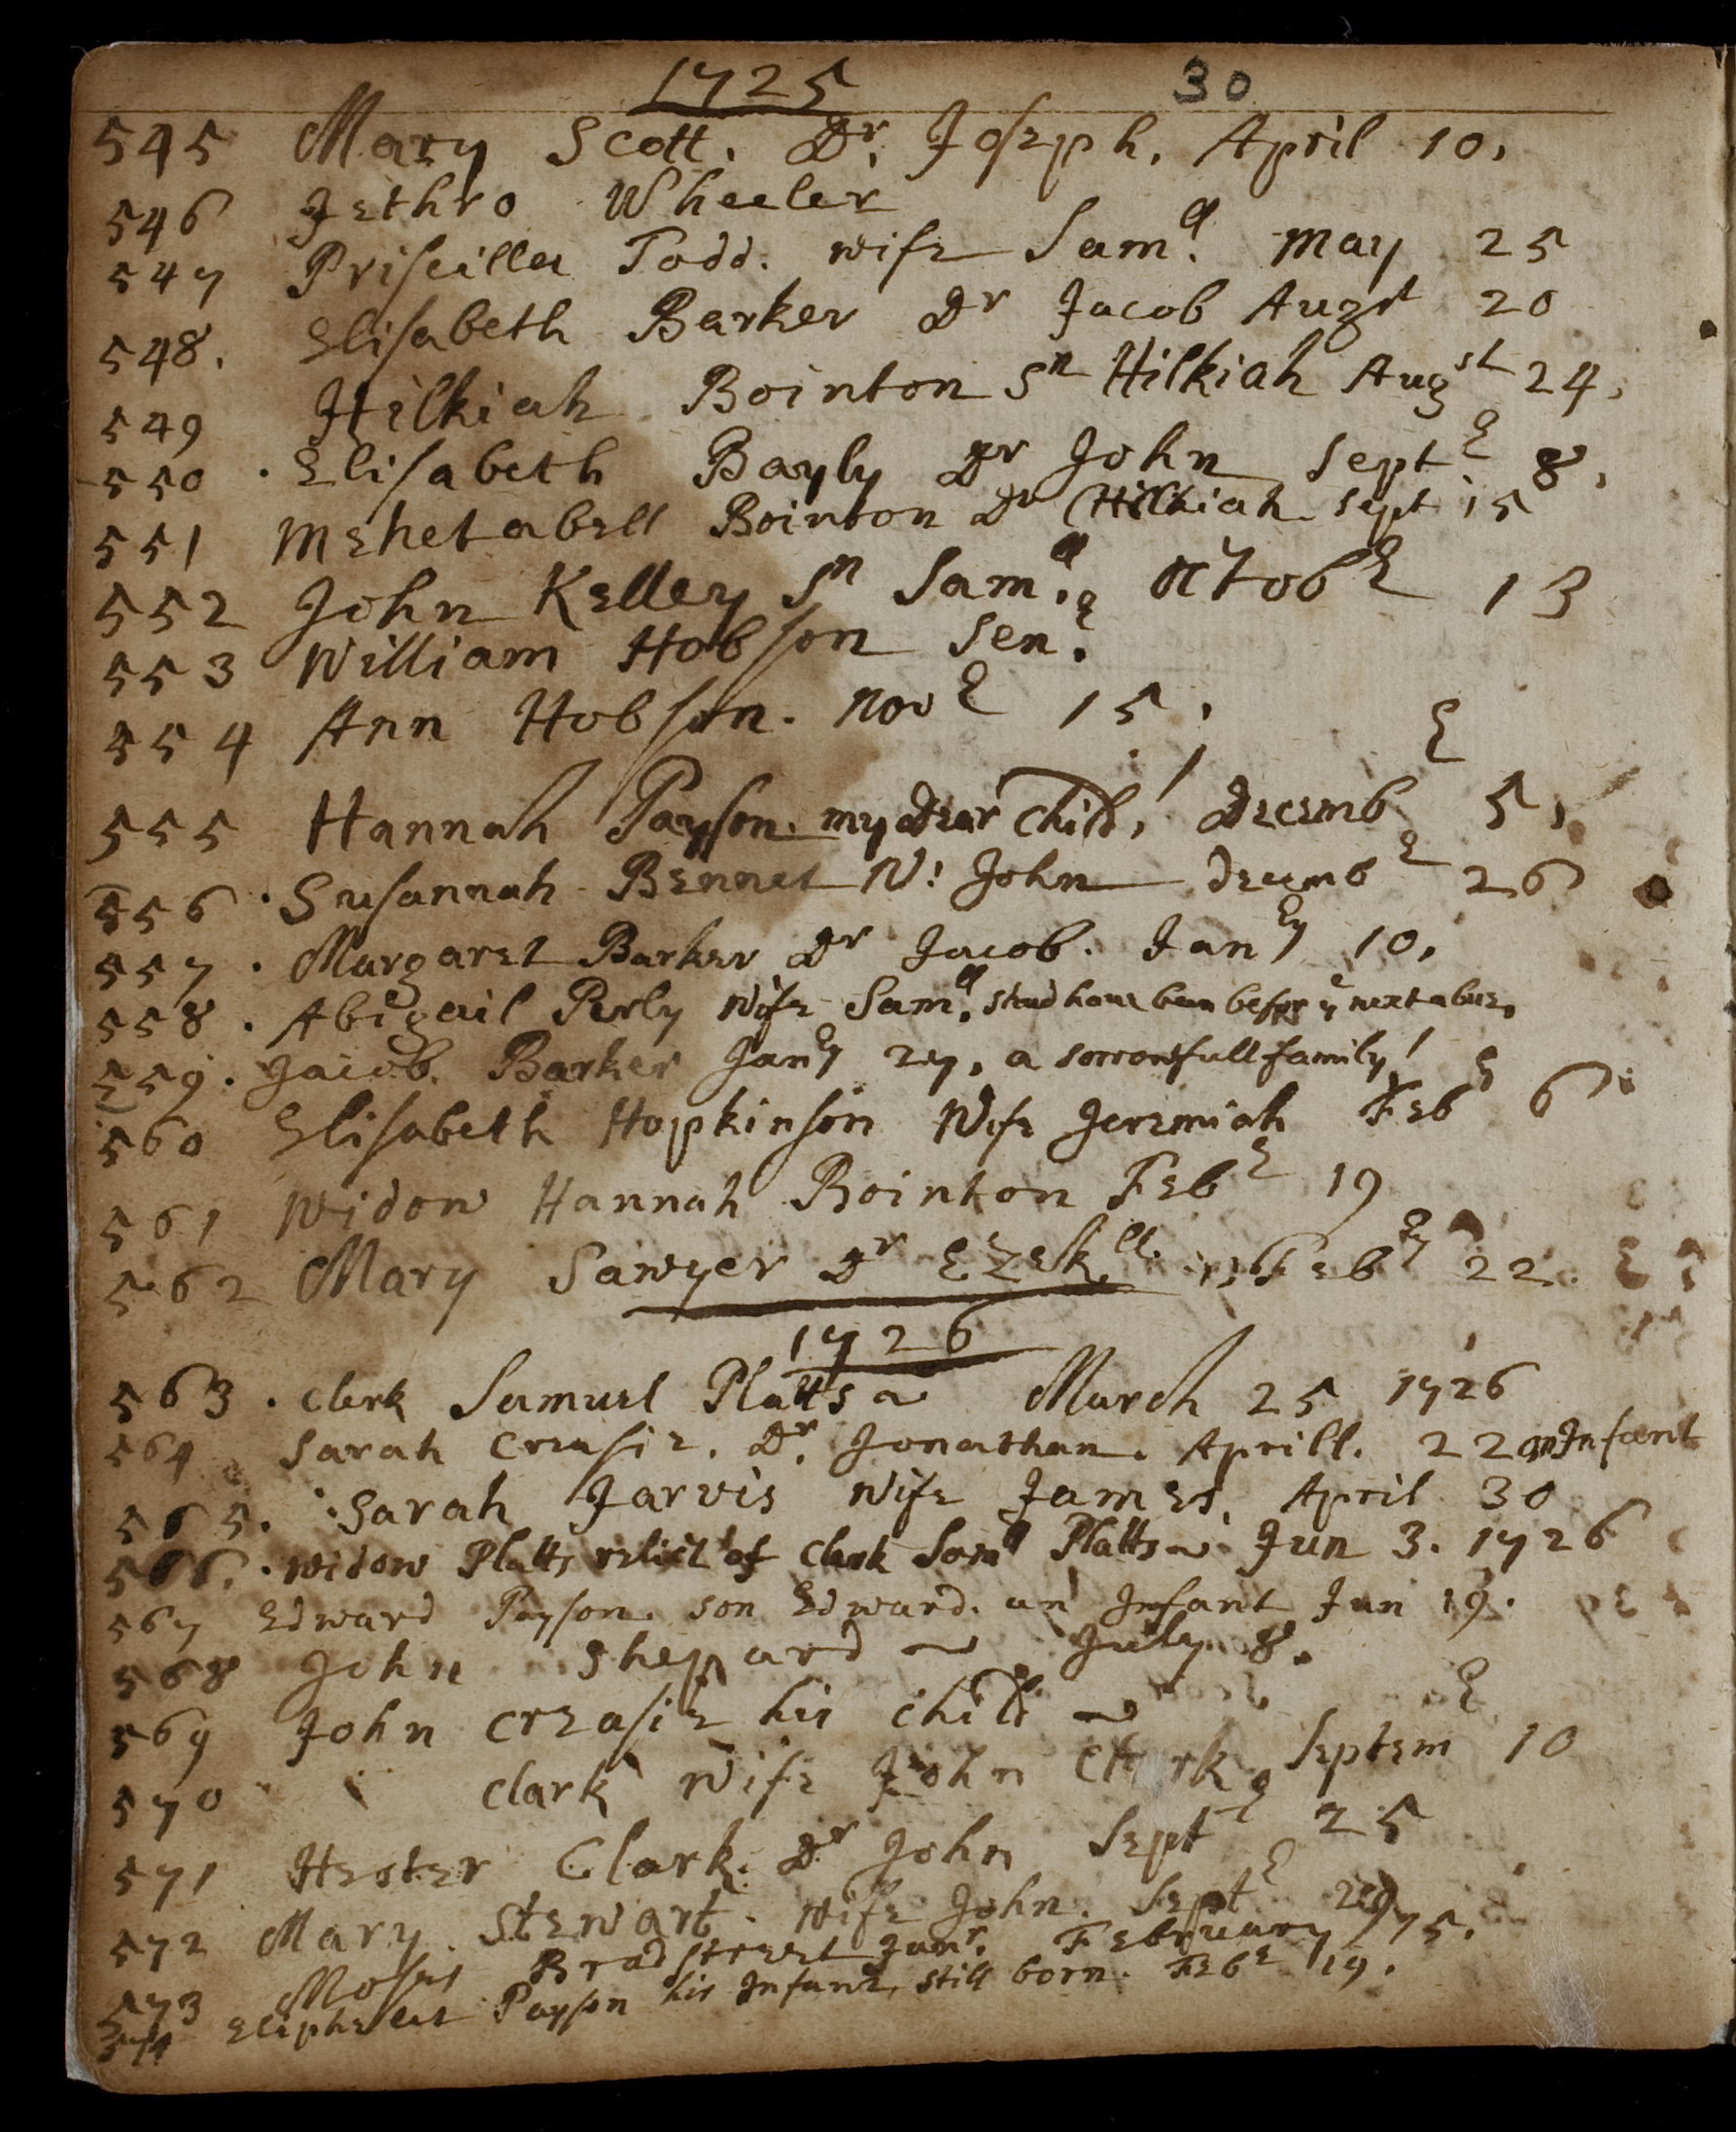 1725 30
545 Mary Scott. Dr. Joseph. April 10.
546 Jethro Wheeler
547 Priscilla Todd. wife Samll. May 25
548. Elisabeth Barker Dr Jacob Augst 20
549 Hilkiah Bointon Sn Hilkiah Augst 24.
550 . Elisabeth Bayly Dr John Septr 8.
551 Mehetabell Bointon Dr Hilkiah Sept 15
552 John Kelley Sn Samll. Octobr 13
553 William Hobson Senr.
554 Ann Hobson. Novr 15.
555 Hannah Payson. my Dear Child! Decembr 5.
556 . Susannah Bennet W: John Decmbr 26
557 . Margaret Barker Dr Jacob. Janry 10.
558 . Abigail Perly Wife Samll. shud have been before ye next abuv.
559. Jacob. Barker Janry 27. a sorrowfull family!
560 Elisabeth Hopkinson Wife Jeremiah Febr 6
561 Widow Hannah Bointon Febr 19
562 Mary Sawyer Dr Ezekll. Febry 22.
1726
563 . Clerk Samuel Platts ~ March 25 1726
564 Sarah Creasie. Dr. Jonathan. Aprill. 22 an Infant
565. Sarah Jarvis Wife James. April 30
566. . Widow Platts relict of Clerk Samll Platts ~ Jun 3. 1726
567 Edward Payson. son Edward. an Infant Jun 19.
568 John Sheppard ~ July 8.
569 John Creasie his child ~
570 Clark Wife John Clark Septemr 10
571 Hester Clark. Dr John Septr 25
572 Mary. Stewart. Wife John. Septr 29
573 Moses Bradstreet Junr. February 15.
574 Eliphelet Payson his Infant, still born. Febr 19.